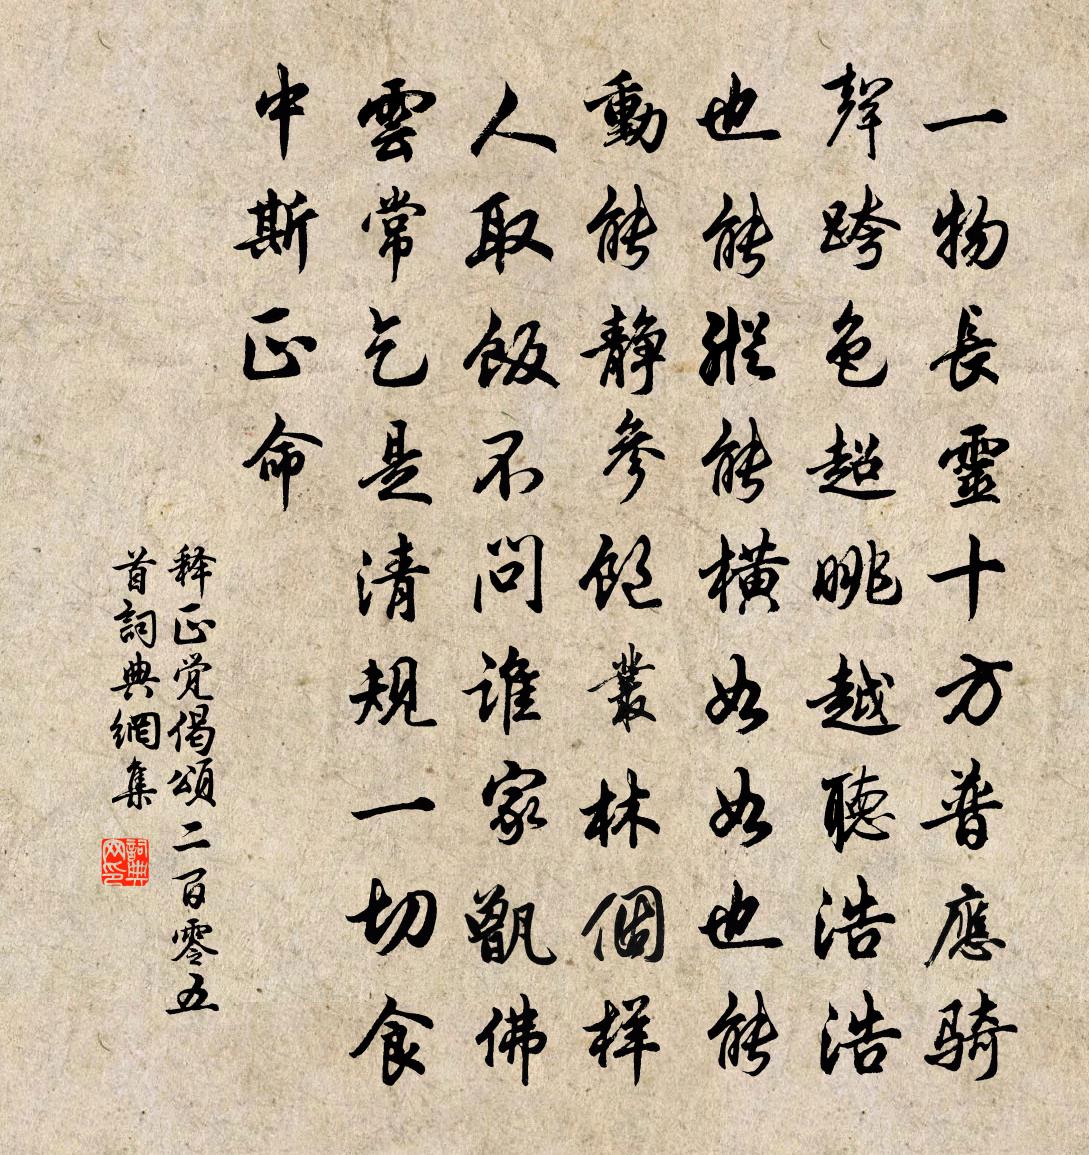 一物長靈十方普應騎
聲跨色超眺越聽浩浩
也能縱能橫如如也能
動能静參飽叢林個樣
人取飯不問誰家甑佛
雲常乞是清規一切食
中斯正命
释正觉偈頌二百零五
首詞典網集
詞典网印